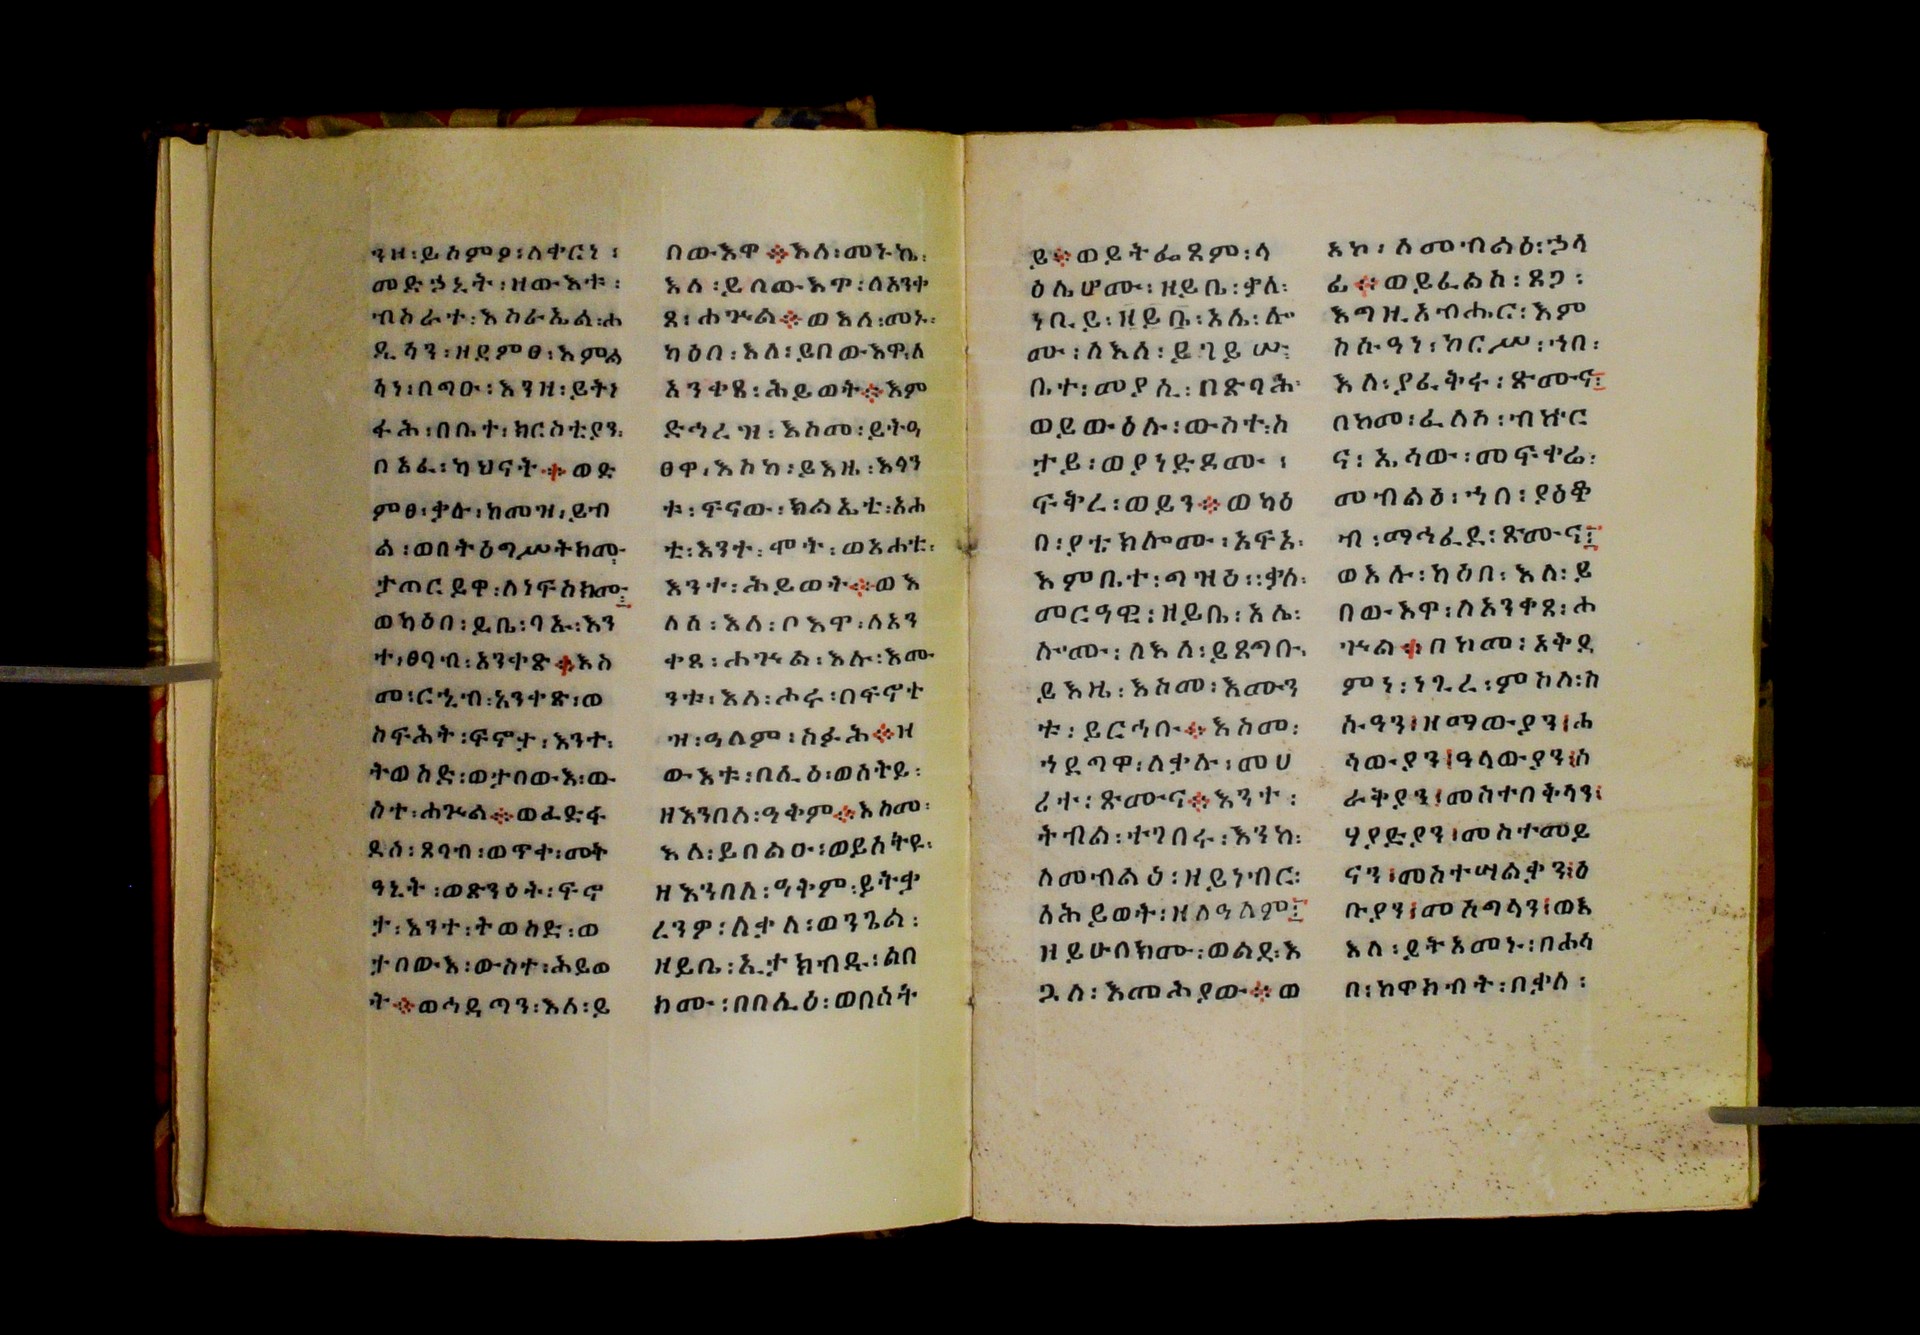 ንዘ፡ይሰምዖ፡ለቀርነ፡
መድኃኒት፡ዘውእቱ፡
ብስራተ፡እስራኤል፡ሐ
ዲሳን፡ዘደምፀ፡እምል
ሳነ፡በጣዑ፡እንዘ፡ይትነ
ፋሕ፡በቤተ፡ክርስቲያን፡
በአፈ፡ካህናት፨ወድ
ምፀ፡ቃሉ፡ከመዝ፡ይብ
ል፡ወበትዕግሥትክሙ፡
ታጠርይዋ፡ለነፍስክሙ፡
ወካዕበ፡ይቤ፡ባኡ፡እን
ተ፡ፀባብ፡አንቀጽ፨እስ
መ፡ርኂብ፡አንቀጽ፡ወ
ስፍሕት፡ፍኖታ፡እንተ፡
ትወስድ፡ወታበውእ፡ው
ስተ፡ሐጕል፨ወፈድፋ
ደሰ፡ጸባብ፡ወጥቀ፡መት
ዓኒት፡ወጽንዕት፡ፍኖ
ታ፡እንተ፡ትወስድ፡ወ
ታበውእ፡ውስተ፡ሕይወ
ት፨ወኅዳጣን፡እለ፡ይ
በውእዋ፨እለ፡መኑኬ፡
እለ፡ይበውእዋ፡ለአንቀ
ጸ፡ሐጕል፨ወእለ፡መኑ፡
ካዕበ፡እለ፡ይበውእዋ፡ለ
አንቀጸ፡ሕይወት፨እም
ድኅረ፡ዝ፡እስመ፡ይትዓ
ፀዋ፡እስከ፡ይእዜ፡እላን
ቱ፡ፍናው፡ክልኤቲ፡አሐ
ቲ፡እንተ፡ሞት፡ወአሐቲ፡
እንተ፡ሕይወት፨ወእ
ለሰ፡እለ፡ቦእዋ፡ለአን
ቀጸ፡ሐጕል፡እሉ፡እሙ
ንቱ፡እለ፡ሖሩ፡በፍኖተ
ዝ፡ዓለም፡ስፉሕ፨ዝ
ውእቱ፡በሊዕ፡ወሰትይ፡
ዘእንበለ፡ዓቅም፨እስመ፡
እለ፡ይበልዑ፡ወይሰትዩ፡
ዘእንበለ፡ዓቅም፡ይትቃ
ረንዎ፡ለቃለ፡ወንጌል፡
ዘይቤ፡ኢታክብዱ፡ልበ
ክሙ፡በበሊዕ፡ወበስት
ይ፨ወይትፌጸም፡ላ
ዕሌሆሙ፡ዘይቤ፡ቃለ፡
ነቢይ፡ዘይቤ፡አሌ፡ሎ
ሙ፡ለእለ፡ይገይሡ፡
ቤተ፡መያሲ፡በጽባሕ፡
ወይውዕሉ፡ውስተ፡ስ
ታይ፡ወያነድዶሙ፡
ፍቅረ፡ወይን፨ወካዕ
በ፡ያቲክሎሙ፡አፍአ፡
እምቤተ፡ግዝዕ፡፡ቃለ፡
መርዓዊ፡ዘይቤ፡አሌ፡
ሎሙ፡ለእለ፡ይጸግቡ፡
ይእዜ፡እስመ፡እሙን
ቱ፡ይርኅቡ፨እስመ፡
ኀደጣዋ፡ለቃሉ፡መሀ
ረተ፡ጽሙና፨እንተ፡
ትብል፡ተገበሩ፡እንከ፡
ለመብልዕ፡ዘይነብር፡
ለሕይወት፡ዘለዓለም፡
ዘይሁበክሙ፡ወልደ፡እ
ጓለ፡እመሕያው፨ወ
አኮ፡ለመብልዕ፡ኃላ
ፊ፨ወይፈልስ፡ጸጋ፡
እግዚአብሔር፡እም
ስሱዓነ፡ከርሥ፡ኀበ፡
እለ፡ያፈቅሩ፡ጽሙና፡
በከመ፡ፈለሰ፡ብዙር
ና፡ኤሳው፡መፍቀሬ፡
መብልዕ፡ኀበ፡ያዕቆ
ብ፡ማኅፈደ፡ጽሙና፡
ወእሉ፡ካዕበ፡እለ፡ይ
በውእዋ፡ለአንቀጸ፡ሐ
ጕል፨በከመ፡አቅደ
ምነ፡ነጊረ፡ምስለ፡ስ
ሱዓን፡ዘማውያን፡ሐ
ሳውያን፡ዓላውያን፡ስ
ራቅያን፡መስተበቅላን፡
ሃያድያን፡መስተመይ
ናን፡መስተሣልቃን፡ዕ
ቡያን፡መአግላን፡ወእ
እለ፡ይትአመኑ፡በሐሳ
በ፡ከዋክብት፡በቃለ፡